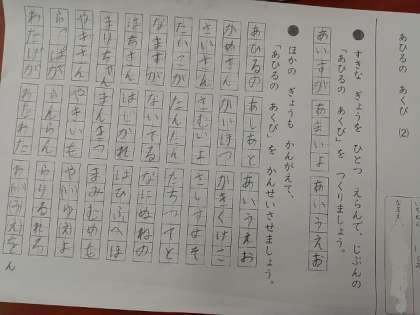 あひるの　あくび　(2)
● すきな　ぎょうを　ひとつ　えらんで、じぶんの
「あひるの　あくび」を　つくりましょう。
あいすが　あまいよ　あいうえお
● ほかの　ぎょうも　かんがえて、
「あひるの　あくび」を　かんせいさせましょう。
あひるの　あしあと　あいうえお
かめさん　かいけつ　かきくけこ
さいさん　さむいよ　さしすせそ
たいこが　たんたん　たちつてと
なまずが　ないてる　なにぬねの
はなさん　はしかれ　はひふへほ
まりちゃん　まんまる　まみむめも
やきさん　やきいも　やいゆえよ
らっぱが　らんらん　らりるれろ
わたげが　わたわた　わいうえをん